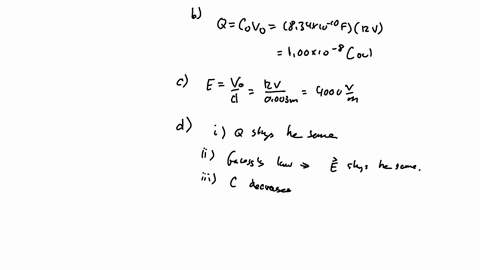 b) Q = C₀V₀ = (8.34×10⁻¹⁰ F)(12V)
= 1.00×10⁻⁸ Coul
c) E = V₀/d = 12V/0.003m = 4000 V/m
d) i) Q stays the same
ii) Gauss's law → E⃗ stays the same.
iii) C decreases